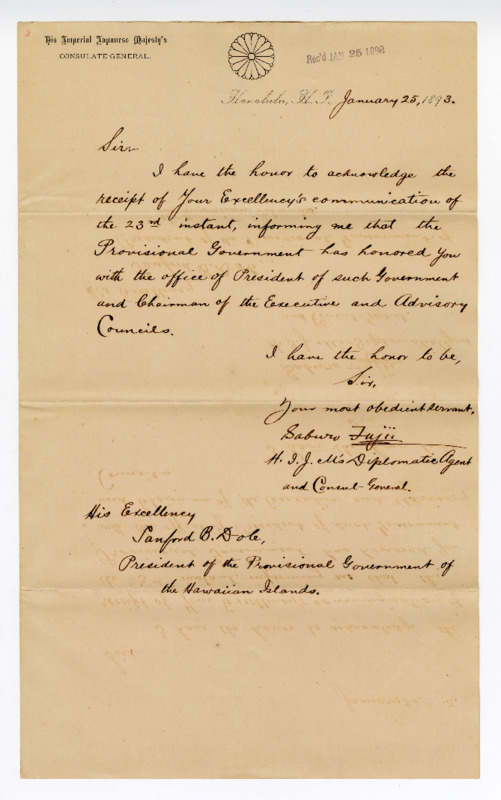 His Imperial Japanese Majesty's
CONSULATE-GENERAL.
Rec'd JAN 25 1893
Honolulu, H. I., January 25, 1893.
Sir:-
I have the honor to acknowledge the
receipt of Your Excellency's communication of
the 23rd instant, informing me that the
Provisional Government has honored You
with the office of President of such Government
and Chairman of the Executive and Advisory
Councils.
I have the honor to be,
Sir,
Your most obedient servant,
Saburo Fujii
H. I. J. M's Diplomatic Agent
and Consul-General.
His Excellency
Sanford B. Dole,
President of the Provisional Government of
the Hawaiian Islands.